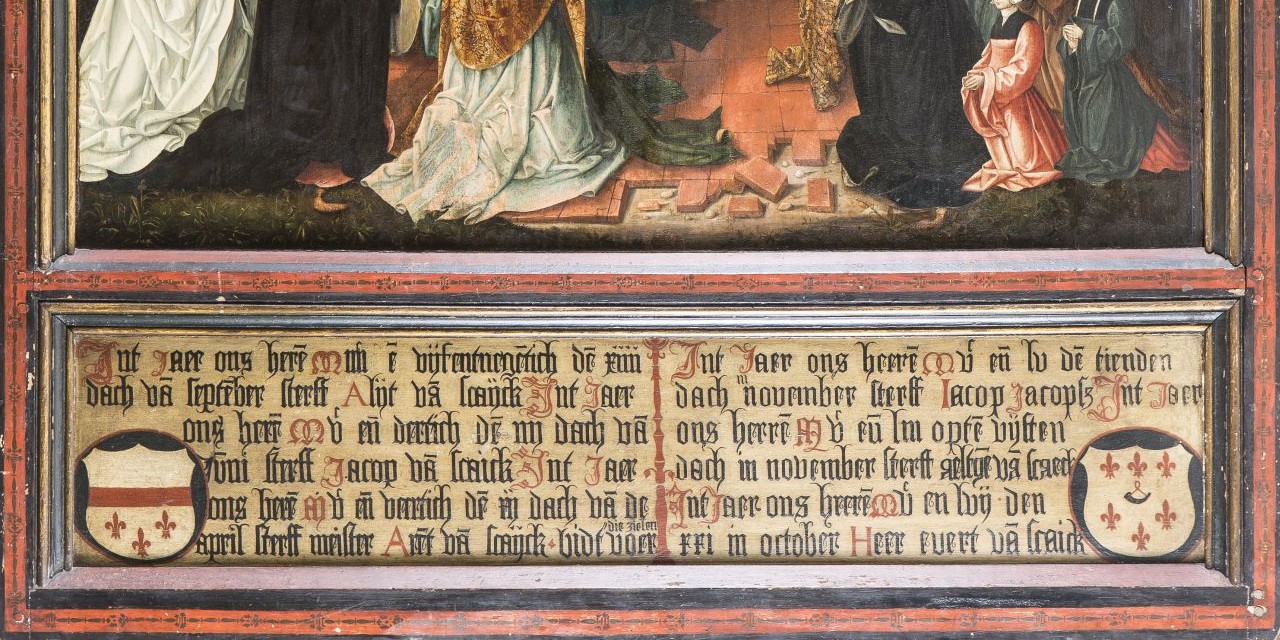 Int Jaer ons herē M iiiiͨ ē vijfentnegētich dē xiiii
dach vā septēber sterff Alijt vā scayck Int Jaer
ons herē M vͨ eñ dertich dē iij dach vā
Jūni sterff Jacop vā scaick Int Jaer
ons herē M vͨ eñ dertich dē dach vā de
april sterff meister Arēt vā scayck · bidt voer die zielen
Int Jaer ons heerē M vͨ eñ lv dē tienden
dach in november sterff Iacop Jacopsz Int Jaer
ons herrē M vͨ eñ optē vijften
doch in november sterff aeltgē vā scaeck
Int Jaer ons heerē M vͨ en lvij den
xxi in october Heer evert vā scaick